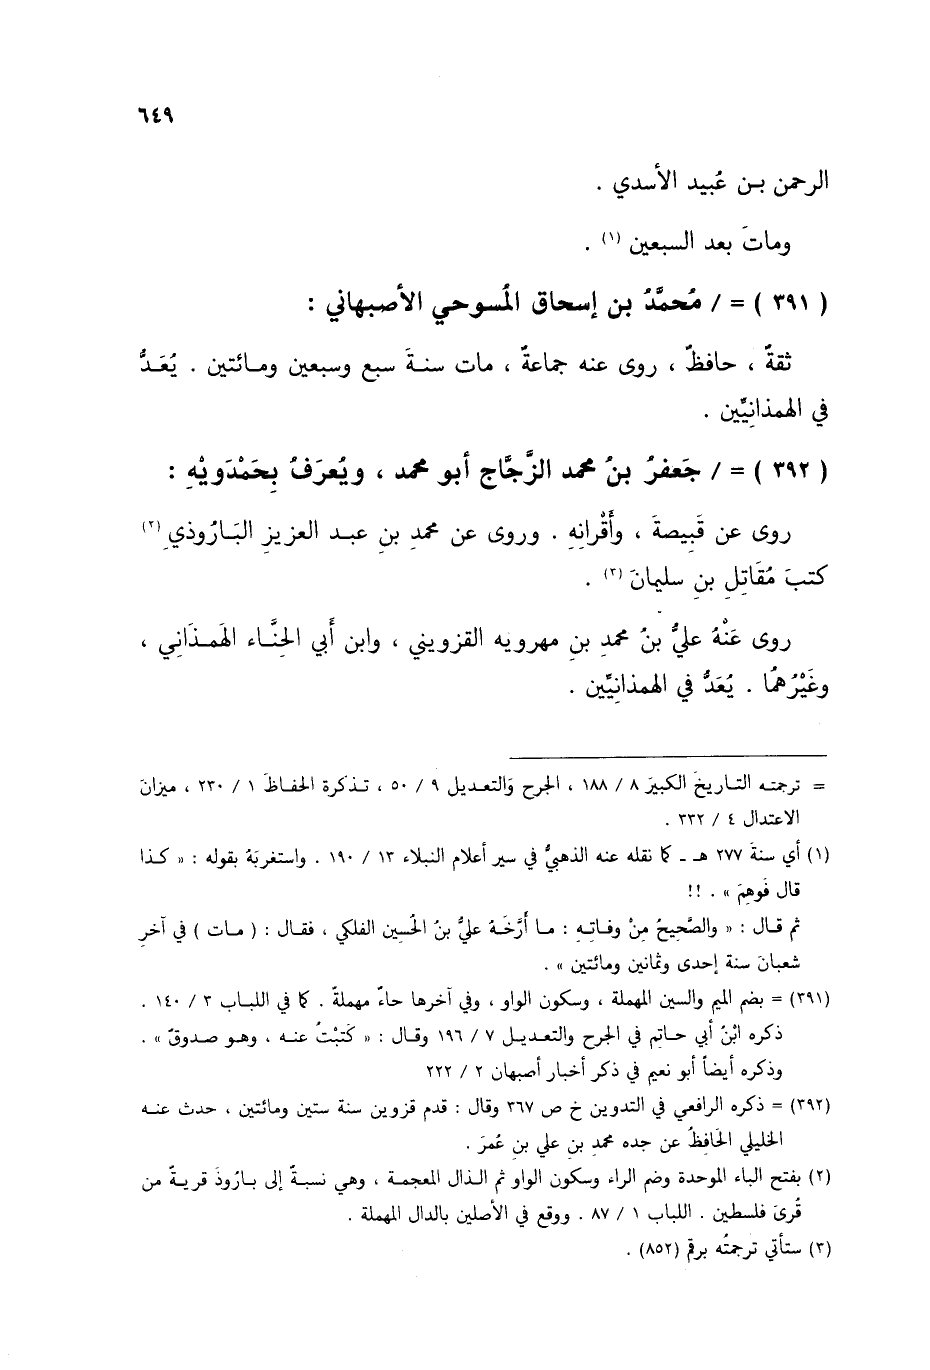 ٦٤٩
الرحمن بـن عُبيد الأسدي .
وماتَ بعد السبعين (١) .
( ٣٩١ ) = / مُحمَّدُ بن إسحاق المُسوحي الأصبهاني :
ثقةٌ ، حافظٌ ، روى عنه جماعةٌ ، مات سنـةَ سبع وسبعين ومـائتين . يُعَـدُّ
في الهمذانِيِّين .
( ٣٩٢ ) = / جَعفرُ بنُ محمد الزَّجَّاج أبو محمد ، ويُعرَفُ بِحَمْدَويْهِ :
روى عن قَبِيصةَ ، وأَقْرانِهِ . وروى عن محمدِ بنِ عبـد العزيزِ البَـارُوذيِ (٢)
كتبَ مُقَاتِلِ بنِ سليمانَ (٣) .
روى عَنْهُ عليُّ بنُ محمدِ بنِ مهرويه القزويني ، وابن أَبي الحِنَّـاء الهَمـذَانِي ،
وغَيْرُهُمَا . يُعَدُّ في الهمذانِيِّين .
= ترجمته التـاريخَ الكبيرَ ٨ / ١٨٨ ، الجرح وَالتعـديل ٩ / ٥٠ ، تـذكرة الحفـاظَ ١ / ٢٣٠ ، ميزانَ
الاعتدال ٤ / ٣٣٢ .
(١) أي سنةَ ٢٧٧ هـ ـ كما نقله عنه الذهبيُّ في سير أعلام النبلاء ١٣ / ١٩٠ . واستغربَهُ بقوله : « كـذا
قال فَوهِمَ » . !!
ثم قـال : « والصَّحِيحُ مِنْ وفـاتِـهِ : مـا أَرَّخَـهُ عليُّ بنُ الحُسين الفلكي ، فقـال : ( مـات ) في آخرِ
شعبانَ سنة إحدى وثمانين ومائتين » .
(٣٩١) = بضم الميم والسين المهملة ، وسكون الواو ، وفي آخرها حاءٌ مهملةٌ . كما في اللباب ٣ / ١٤٠ .
ذكره ابْنُ أبي حـاتِم في الجرح والتعـديـل ٧ / ١٩٦ وقـال : « كَتبْتُ عنـه ، وهـو صدوقٌ » .
وذكره أيضاً أبو نعيم في ذكر أخبار أصبهان ٢ / ٢٢٢
(٣٩٢) = ذكره الرافعي في التدوين خ ص ٣٦٧ وقال : قدم قزوين سنة ستين ومائتين ، حدث عنـه
الخليلي الحَافظُ عن جده محمد بن علي بن عُمرَ .
(٢) بفتح الباء الموحدة وضم الراء وسكون الواو ثم الـذال المعجمـة ، وهي نسبـةٌ إلى بـارُوذَ قريـةٌ من
قُرىَ فلسطين . اللباب ١ / ٨٧ . ووقع في الأصلين بالدال المهملة .
(٣) ستأتي ترجمتُه برقم (٨٥٢) .